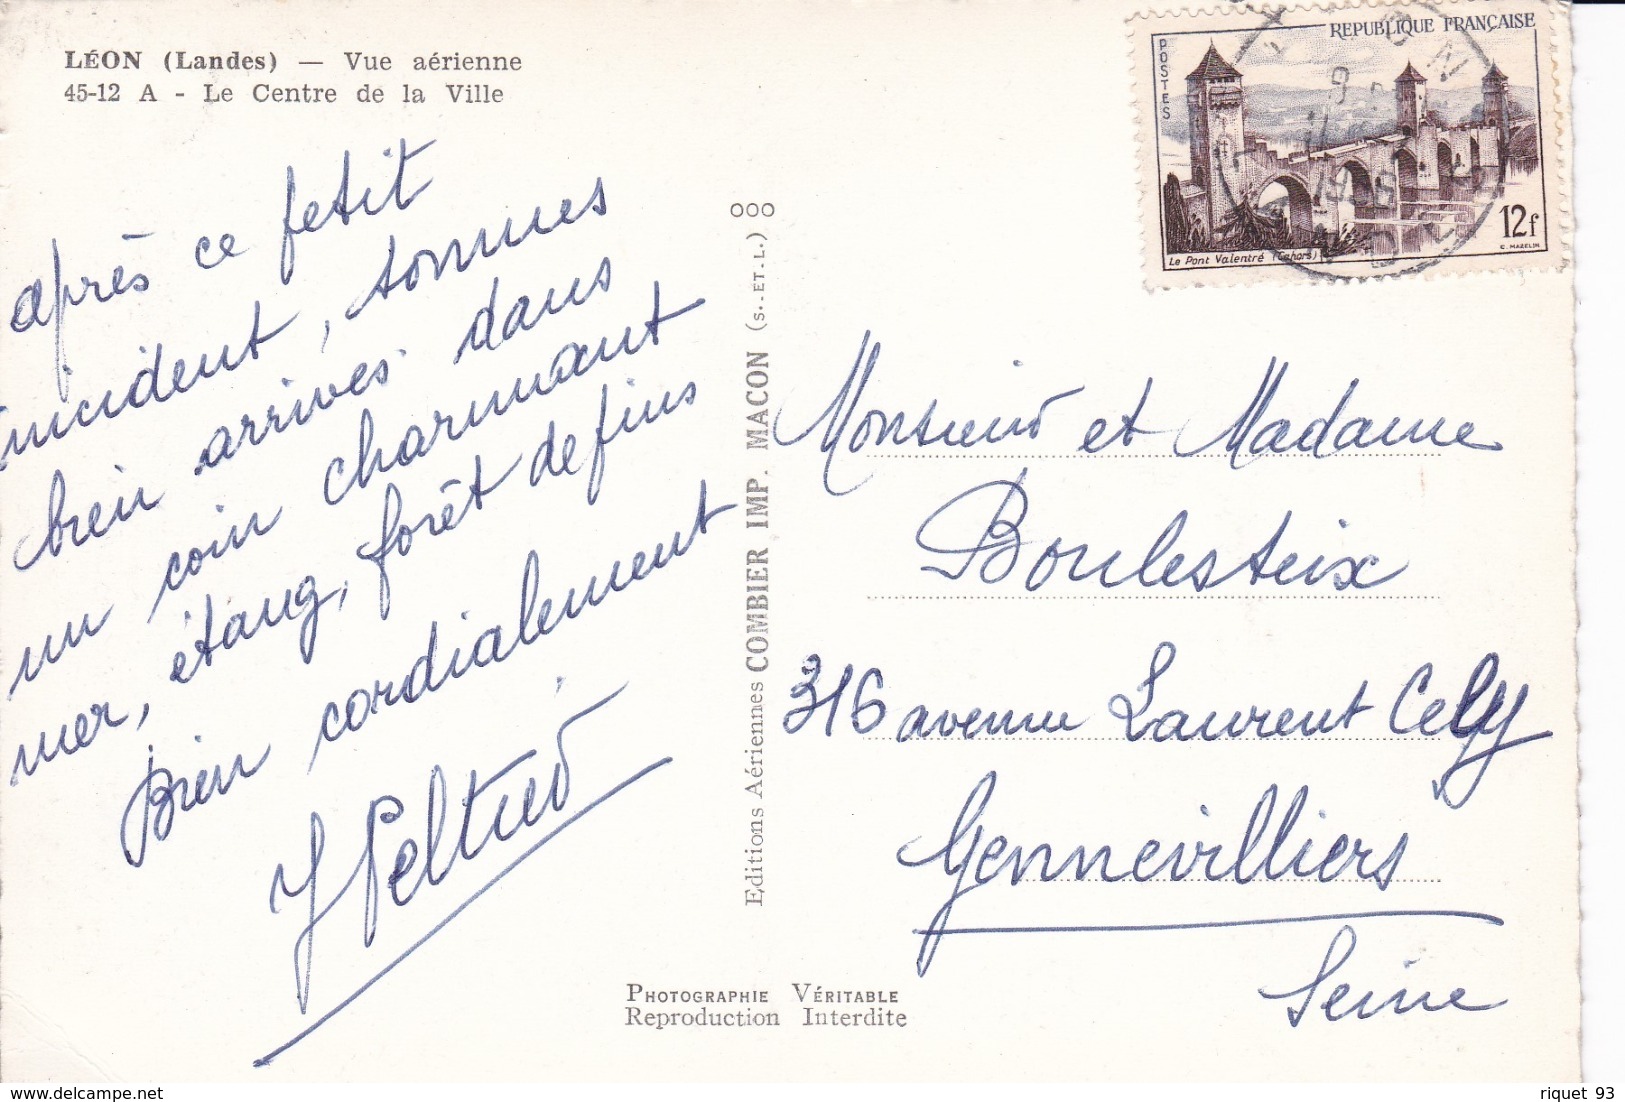 LÉON (Landes) — Vue aérienne
45-12 A - Le Centre de la Ville
après ce petit
incident, sommes
bien arrivés dans
un coin charmant
mer, étang, forêt de pins
Bien cordialement
J Peltier
000
Editions Aériennes COMBIER IMP. MACON (S.-ET-L.)
PHOTOGRAPHIE VÉRITABLE
Reproduction Interdite
REPUBLIQUE FRANÇAISE
POSTES
12f
Le Pont Valentré (Cahors)
C. MAZELIN
Monsieur et Madame
Boulesteix
316 avenue Laurent Cely
Gennevilliers
Seine
riquet 93